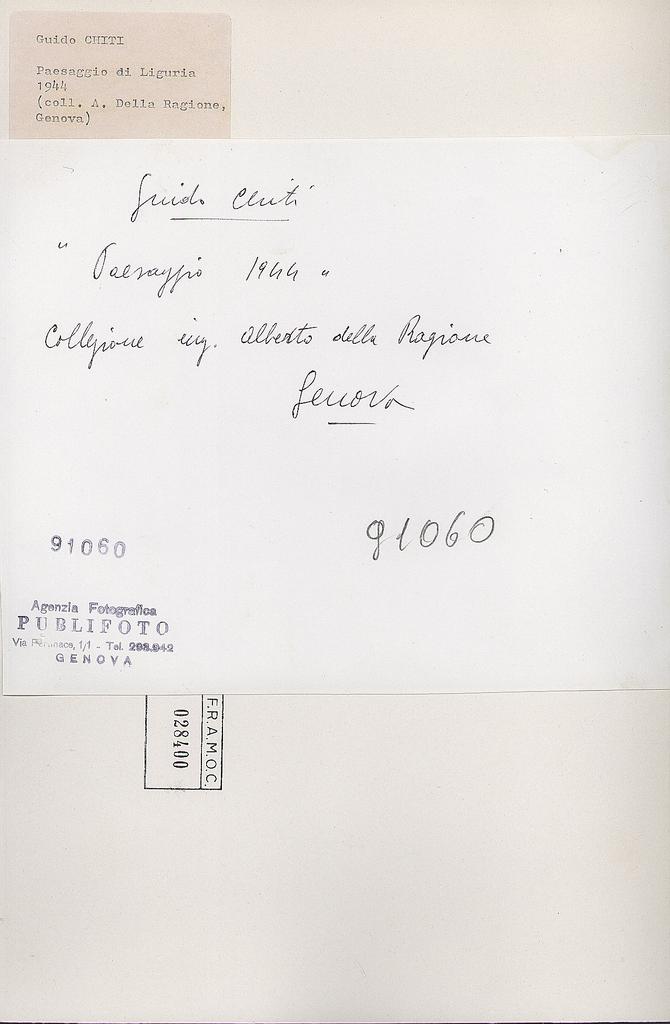 Guido CHITI
Paesaggio di Liguria
1944
(coll. A. Della Ragione,
Genova)
Guido Chiti
" Paesaggio 1944 "
Collezione ing. Alberto della Ragione
Genova
91060
91060
Agenzia Fotografica
PUBLIFOTO
Via 1/1 - Tel. 298.942
GENOVA
F.R.A.M.O.C.
028400